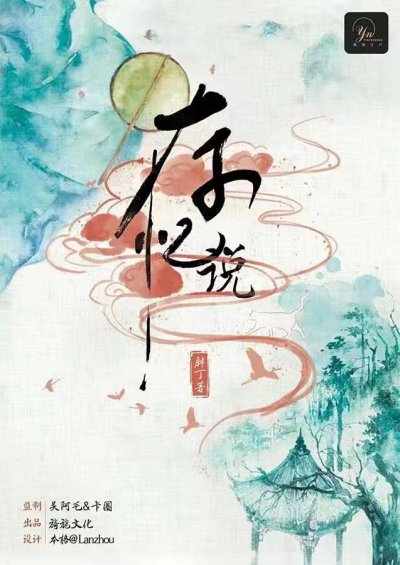 Yn
存忆说
胖丁著
监制 吴阿毛&卡圈
出品 旖旎文化
设计 本格@Lanzhou